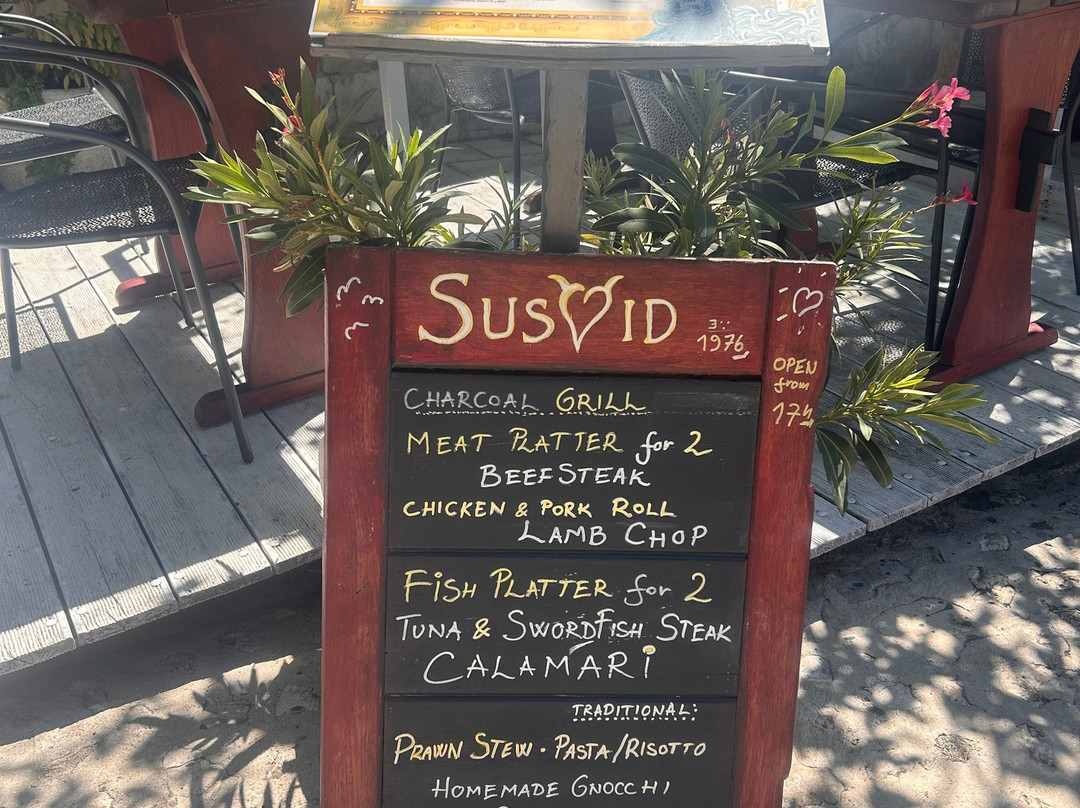 SUSVID
1976
OPEN
from
17h
CHARCOAL GRILL
MEAT PLATTER for 2
BEEFSTEAK
CHICKEN & PORK ROLL
LAMB CHOP
FISH PLATTER for 2
TUNA & SWORDFISH STEAK
CALAMARI
TRADITIONAL:
PRAWN STEW · PASTA/RISOTTO
HOMEMADE GNOCCHI